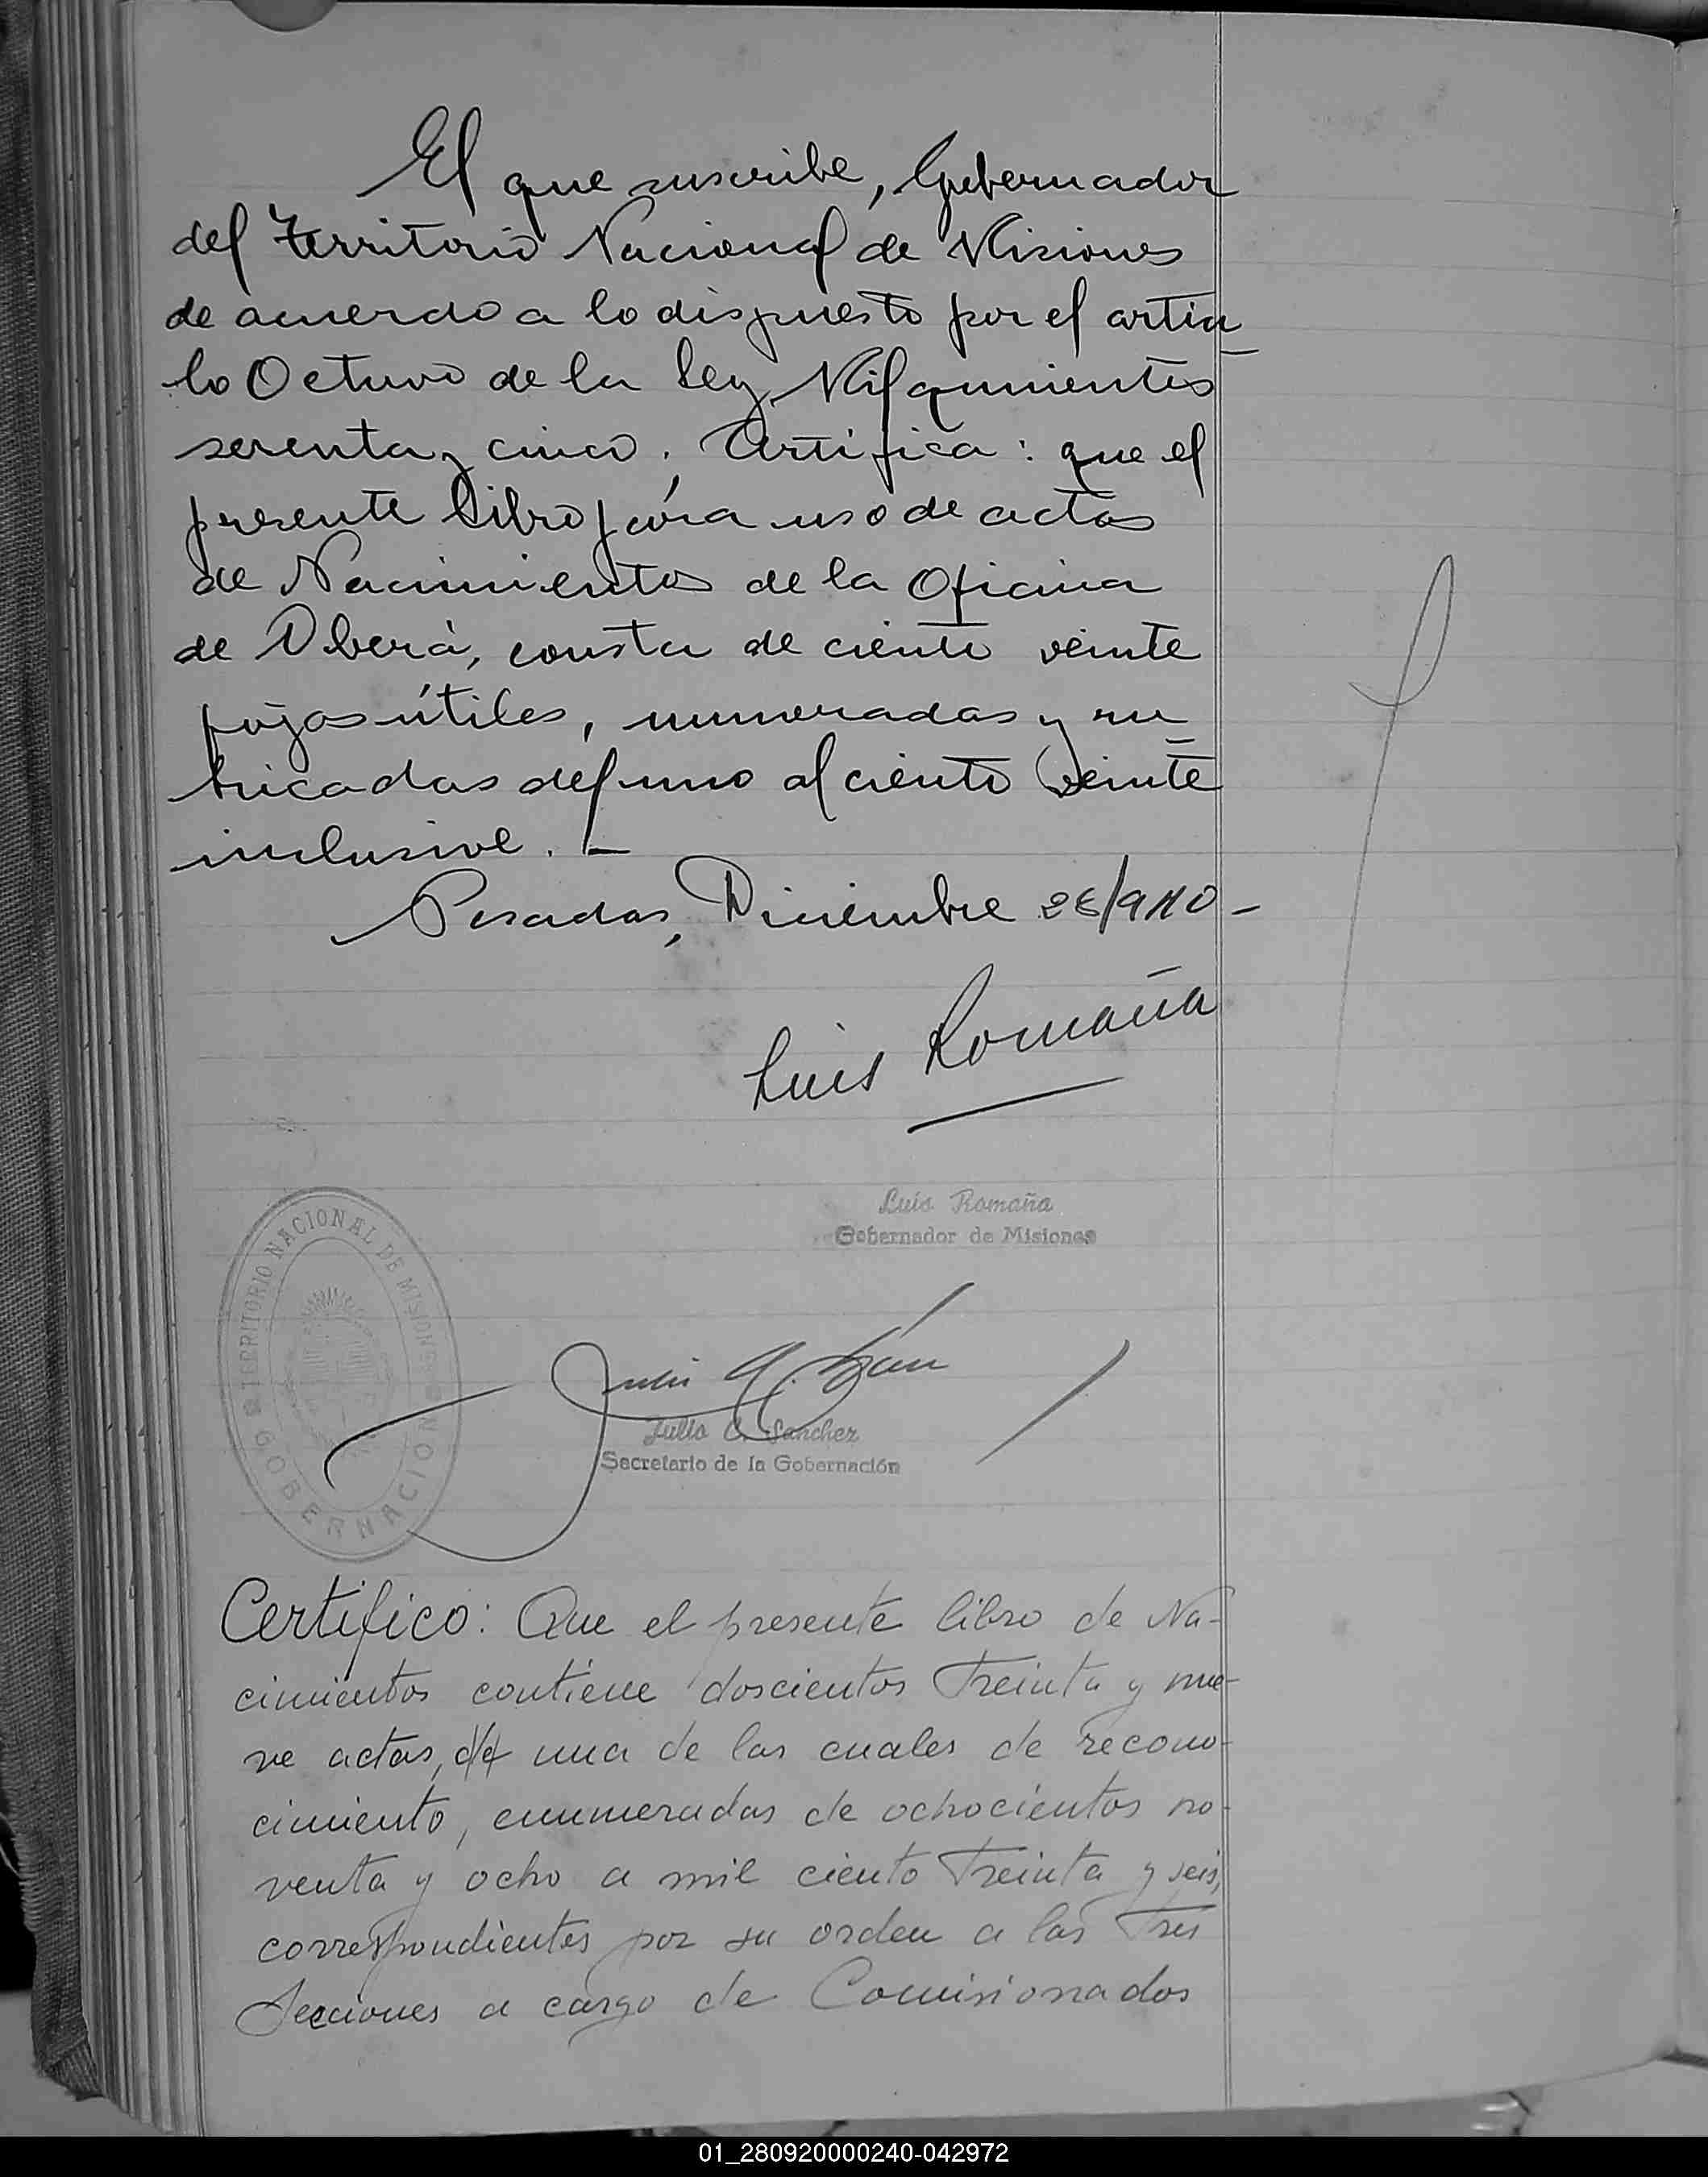 El que suscribe, Gobernador
del Territorio Nacional de Misiones
de acuerdo a lo dispuesto por el articu
lo Octavo de la Ley Mil quinientos
sesenta y cinco. Certifica: que el
presente Libro para uso de actas
de Nacimientos de la Oficina
de Oberá, consta de ciento veinte
fojas útiles, numeradas y ru
bricadas del uno al ciento veinte
inclusive. —
Posadas, Diciembre 26/940 -
Luis Romaña
Luis Romaña
Gobernador de Misiones
TERRITORIO NACIONAL DE MISIONES
GOBERNACION
Julio C. Sanchez
Secretario de la Gobernación
Certifico: Que el presente libro de Na-
cimientos contiene doscientos treinta y nue-
ve actas, una de las cuales de recono-
cimiento, enumeradas de ochocientos no-
venta y ocho a mil ciento treinta y seis,
correspondientes por su orden a las tres
Secciones a cargo de Comisionados
01_280920000240-042972